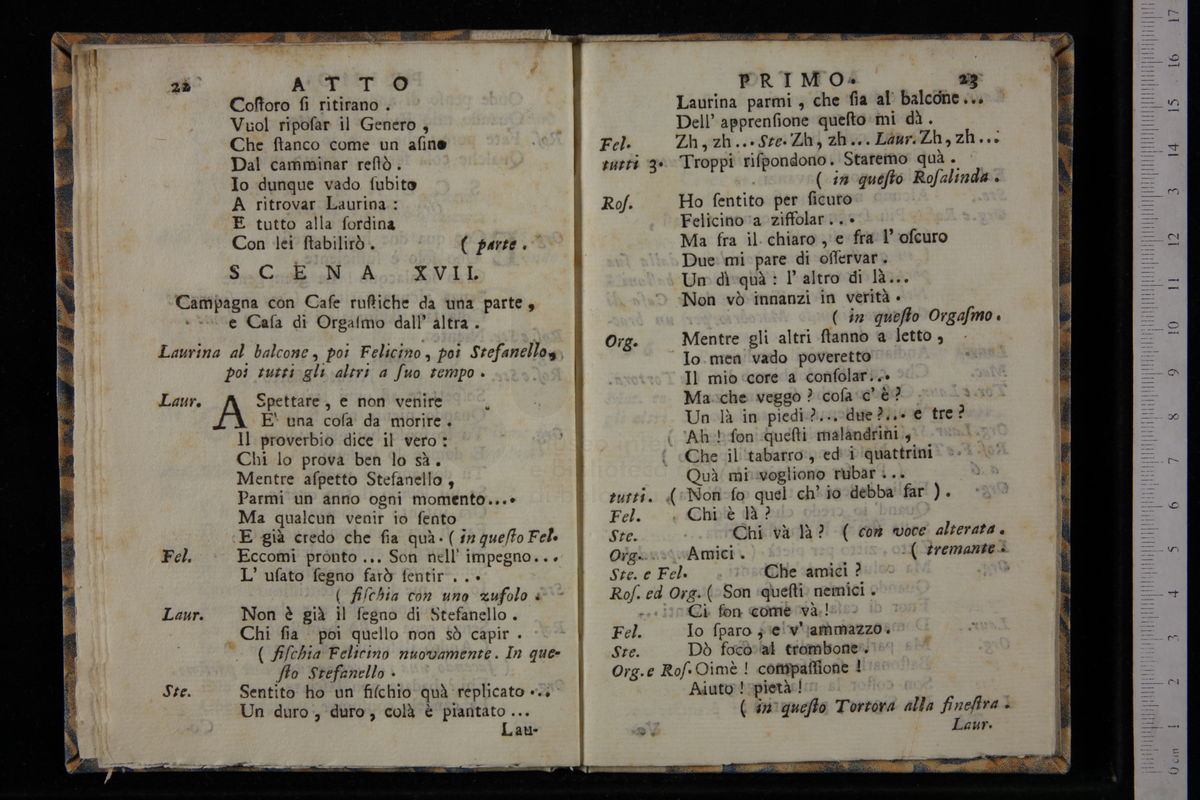 22 ATTO
Coſtoro ſi ritirano .
Vuol ripoſar il Genero ,
Che ſtanco come un aſino
Dal camminar reſtò .
Io dunque vado ſubito
A ritrovar Laurina :
E tutto alla ſordina
Con lei ſtabilirò . ( parte .
SCENA XVII.
Campagna con Caſe ruſtiche da una parte ,
e Caſa di Orgaſmo dall' altra .
Laurina al balcone , poi Felicino , poi Stefanello ,
poi tutti gli altri a ſuo tempo .
Laur. ASpettare , e non venire
E' una coſa da morire .
Il proverbio dice il vero :
Chi lo prova ben lo sà .
Mentre aſpetto Stefanello ,
Parmi un anno ogni momento....
Ma qualcun venir io ſento
E già credo che ſia quà . ( in queſto Fel.
Fel. Eccomi pronto ... Son nell' impegno...
L' uſato ſegno farò ſentir ...
( fiſchia con uno zufolo .
Laur. Non è già il ſegno di Stefanello .
Chi ſia poi quello non sò capir .
( fiſchia Felicino nuovamente . In que-
ſto Stefanello .
Ste. Sentito ho un fiſchio quà replicato ...
Un duro , duro , colà è piantato ...
Lau-
PRIMO. 23
Laurina parmi , che ſia al balcone ...
Dell' apprenſione queſto mi dà .
Fel. Zh , zh ... Ste. Zh , zh ... Laur. Zh , zh ...
tutti 3. Troppi riſpondono . Staremo quà .
( in queſto Roſalinda .
Roſ. Ho ſentito per ſicuro
Felicino a ziffolar ...
Ma fra il chiaro , e fra l' oſcuro
Due mi pare di oſſervar .
Un dì quà : l' altro di là ...
Non vò innanzi in verità .
( in queſto Orgaſmo .
Org. Mentre gli altri ſtanno a letto ,
Io men vado poveretto
Il mio core a conſolar...
Ma che veggo ? coſa c' è ?
Un là in piedi ?... due ?... e tre ?
( Ah ! ſon queſti malandrini ,
Che il tabarro , ed i quattrini
Quà mi vogliono rubar ...
tutti. ( Non ſo quel ch' io debba far ) .
Fel. Chi è là ?
Ste. Chi và là ? ( con voce alterata .
Org. Amici . ( tremante .
Ste. e Fel. Che amici ?
Roſ. ed Org. ( Son queſti nemici .
Ci ſon come và !
Fel. Io ſparo , e v' ammazzo .
Ste. Dò foco al trombone .
Org. e Roſ. Oimè ! compaſſione !
Aiuto ! pietà !
( in queſto Tortora alla fineſtra .
Laur.